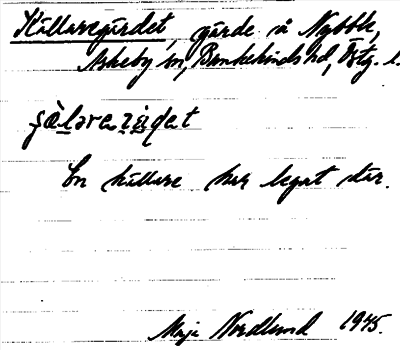 Källaregärdet, gärde å Nybble,
Askeby sn, Bankekinds hd, Östg. l.
En källare har legat där.
Maja Nordlund 1945.